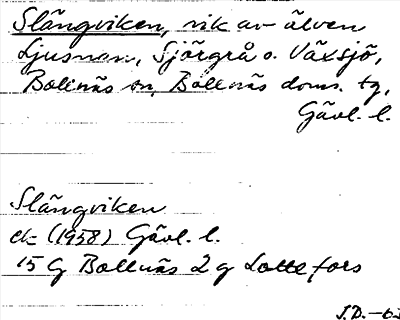 Slängviken, vik av älven
Ljusnan, Sjörgrå o. Växsjö,
Bollnäs sn, Bollnäs doms. tg,
Gävl. l.
Slängviken
ek (1958) Gävl. l.
15 G Bollnäs 2 g Lottefors
J.D. -63